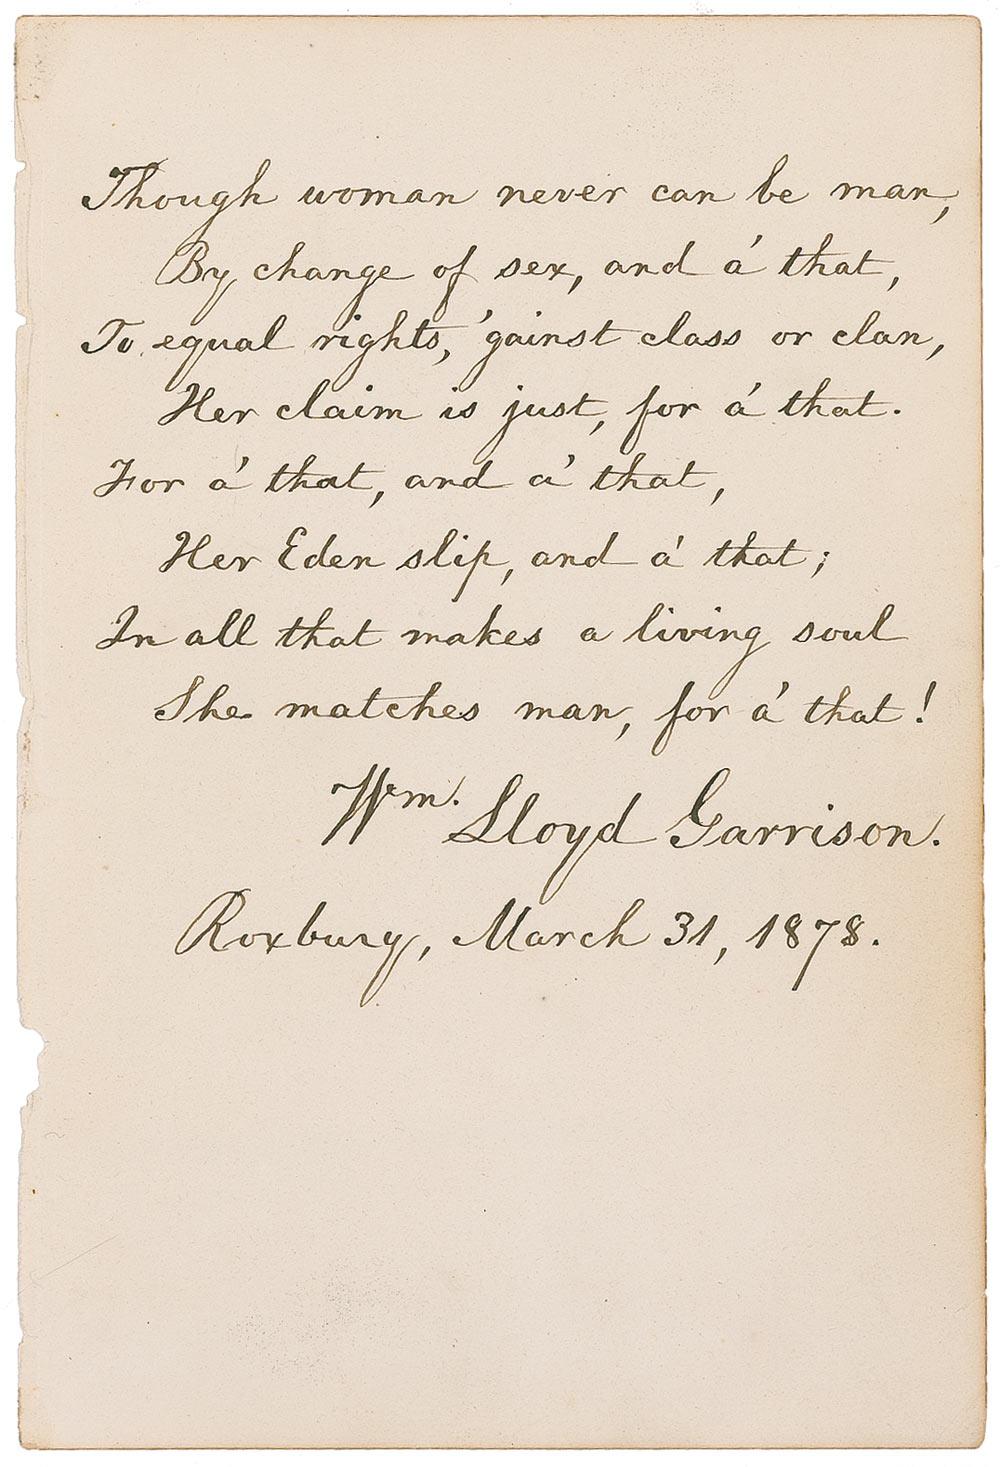 Though woman never can be man,
By change of sex, and a' that,
To equal rights, 'gainst class or clan,
Her claim is just, for a' that.
For a' that, and a' that,
Her Eden slip, and a' that;
In all that makes a living soul
She matches man, for a' that!
Wm. Lloyd Garrison.
Roxbury, March 31, 1878.